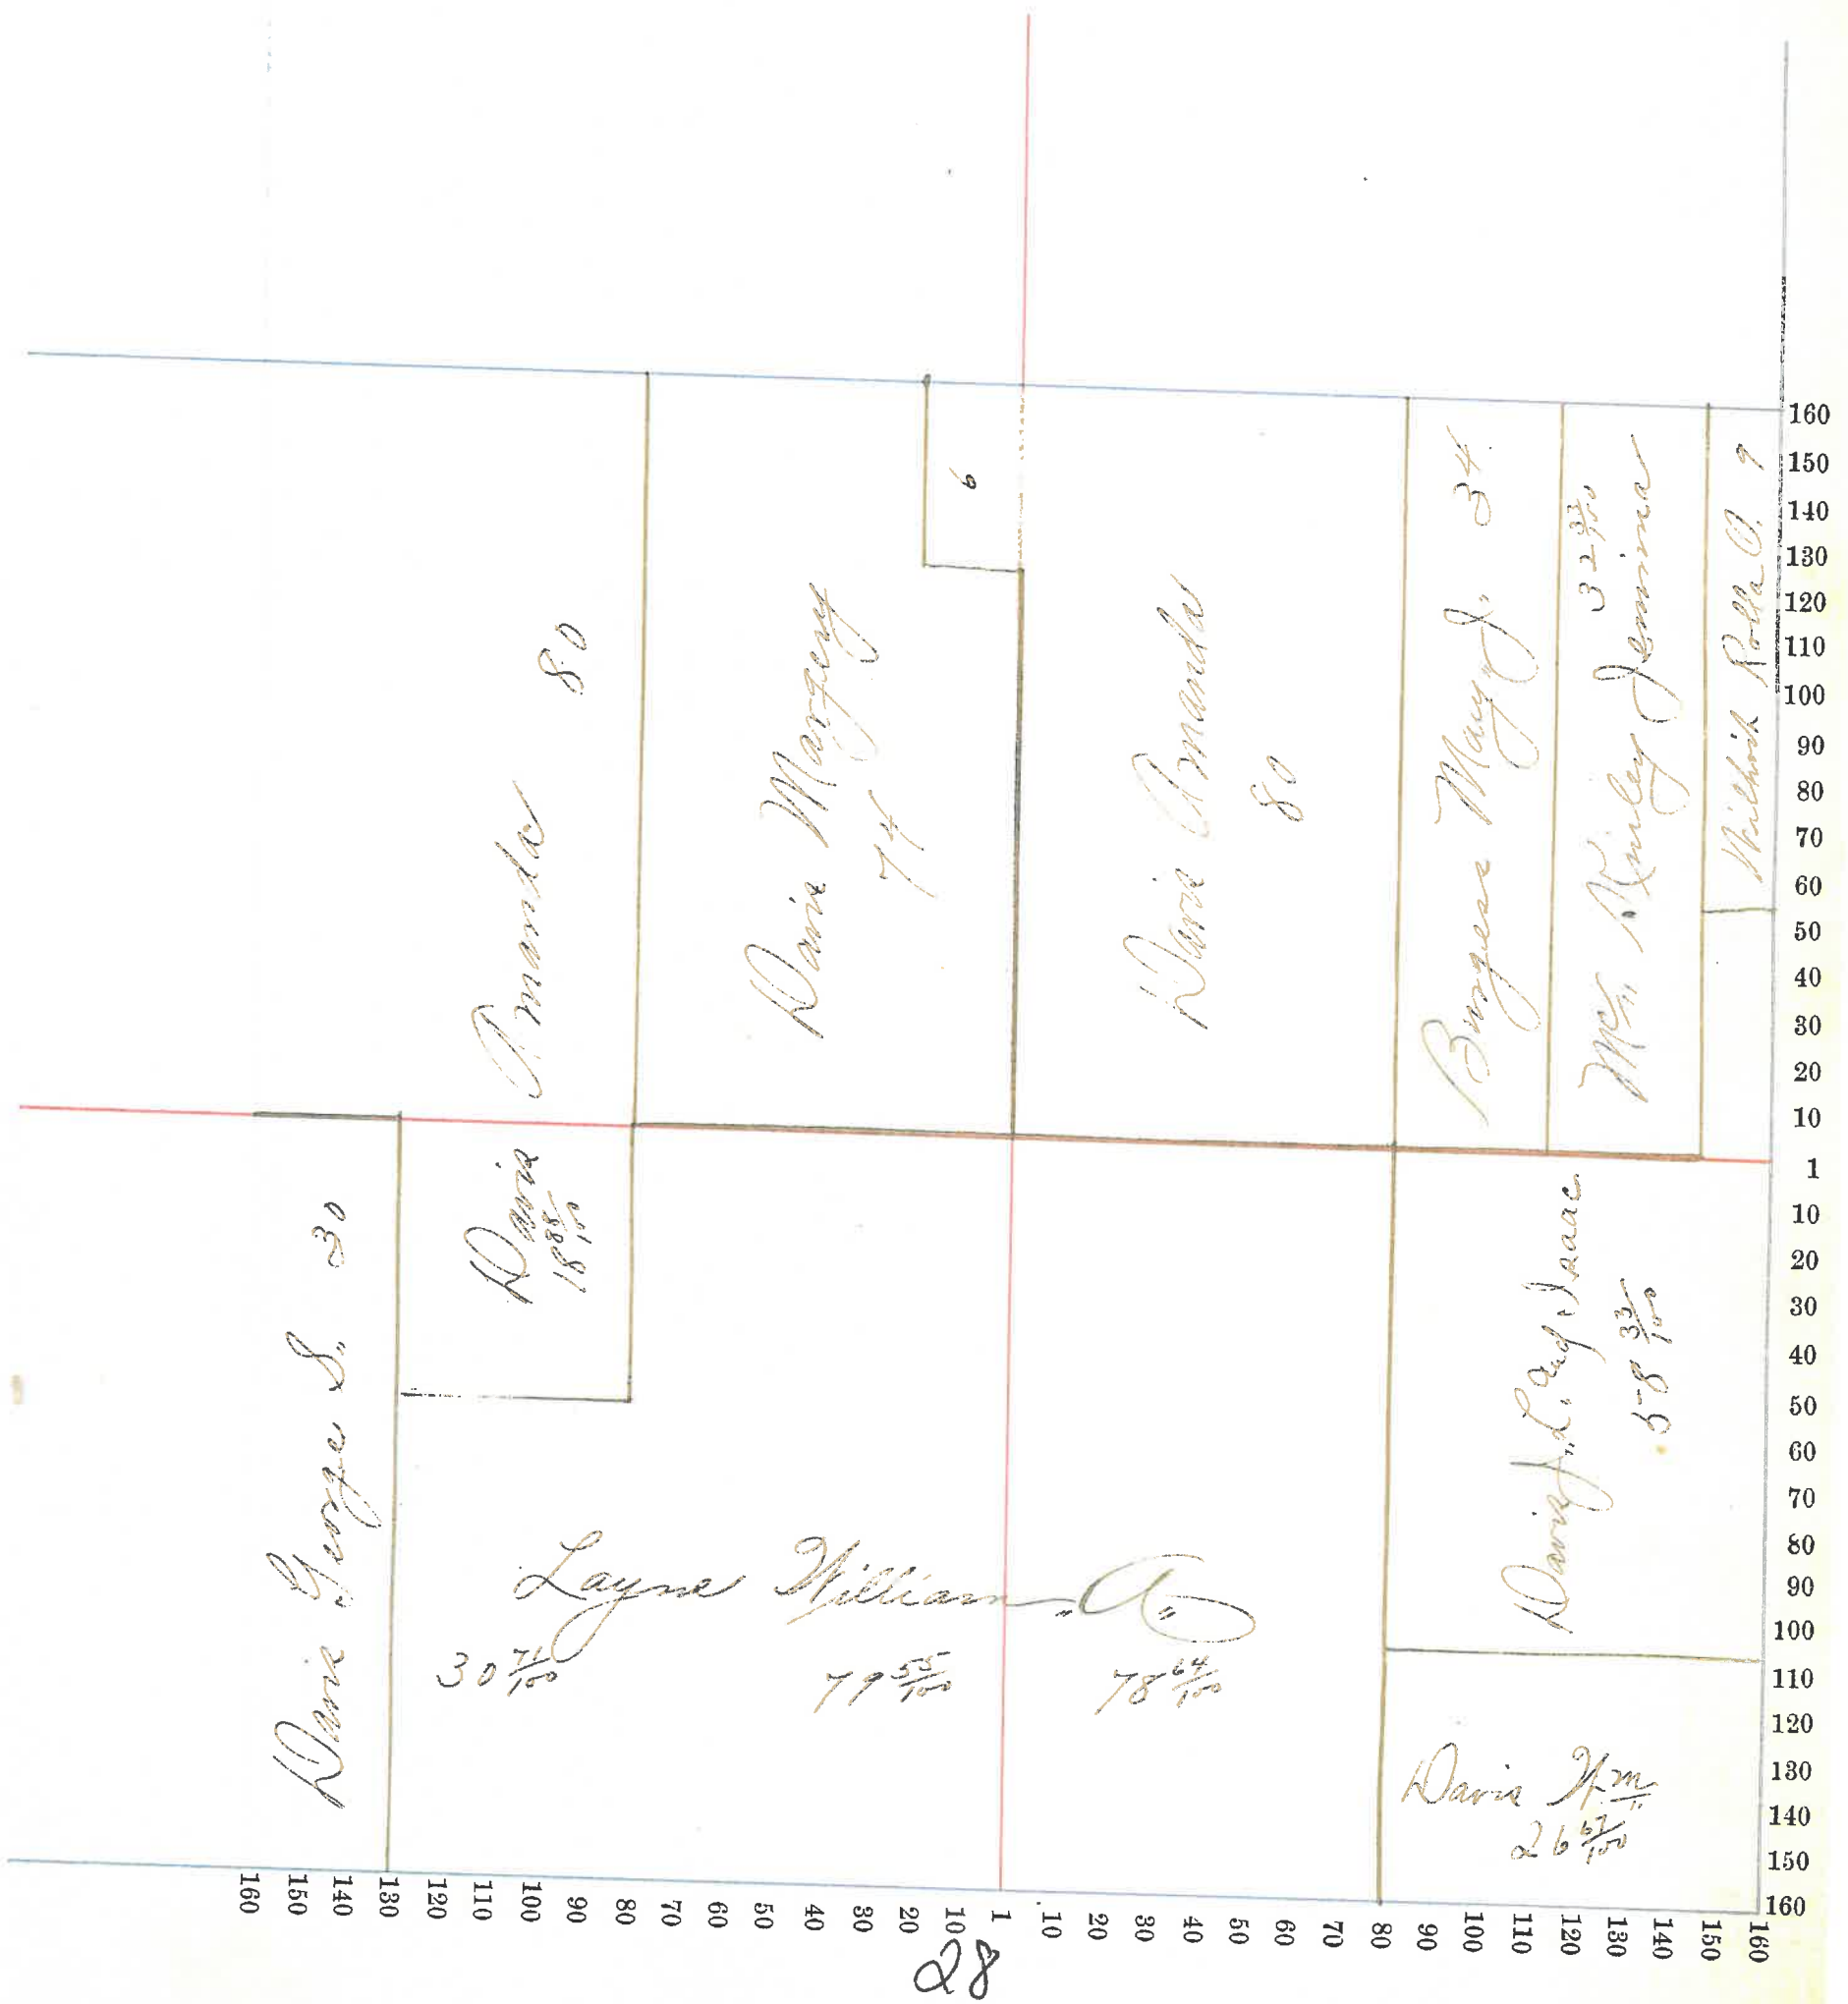 160
150
140
130
120
110
100
90
80
70
60
50
40
30
20
10
1
10
20
30
40
50
60
70
80
90
100
110
120
130
140
150
160
Amanda 80
Davis
18 88/100
Davis Margery
74
6
Davis Amanda
80
Burgess Mary J. 34
32 33/100
Mc Kinley Jemima
Wilhoit Rolla O. 9
Davis George S. 30
Layne William A.
30 71/100
79 55/100
78 64/100
Davis J. L. and Isaac
58 33/100
Davis Wm
26 67/100
160
150
140
130
120
110
100
90
80
70
60
50
40
30
20
10
1
10
20
30
40
50
60
70
80
90
100
110
120
130
140
150
160
28